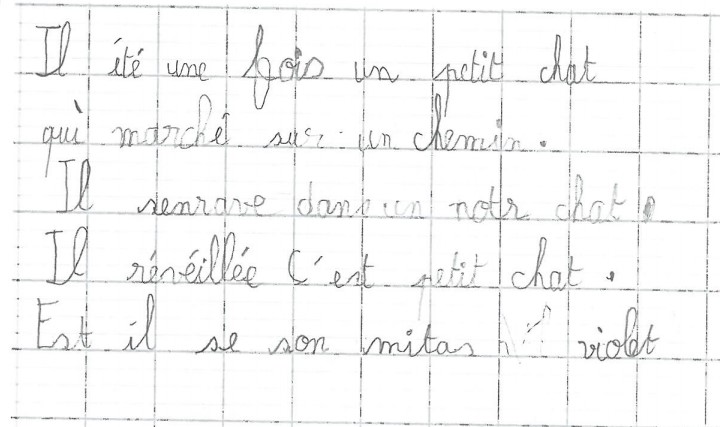 Il été une fois un petit chat
qui marché sur un chemin.
Il senrave dans un notr chat.
Il rénéillée C'est petit chat.
Est il se son mitas violet